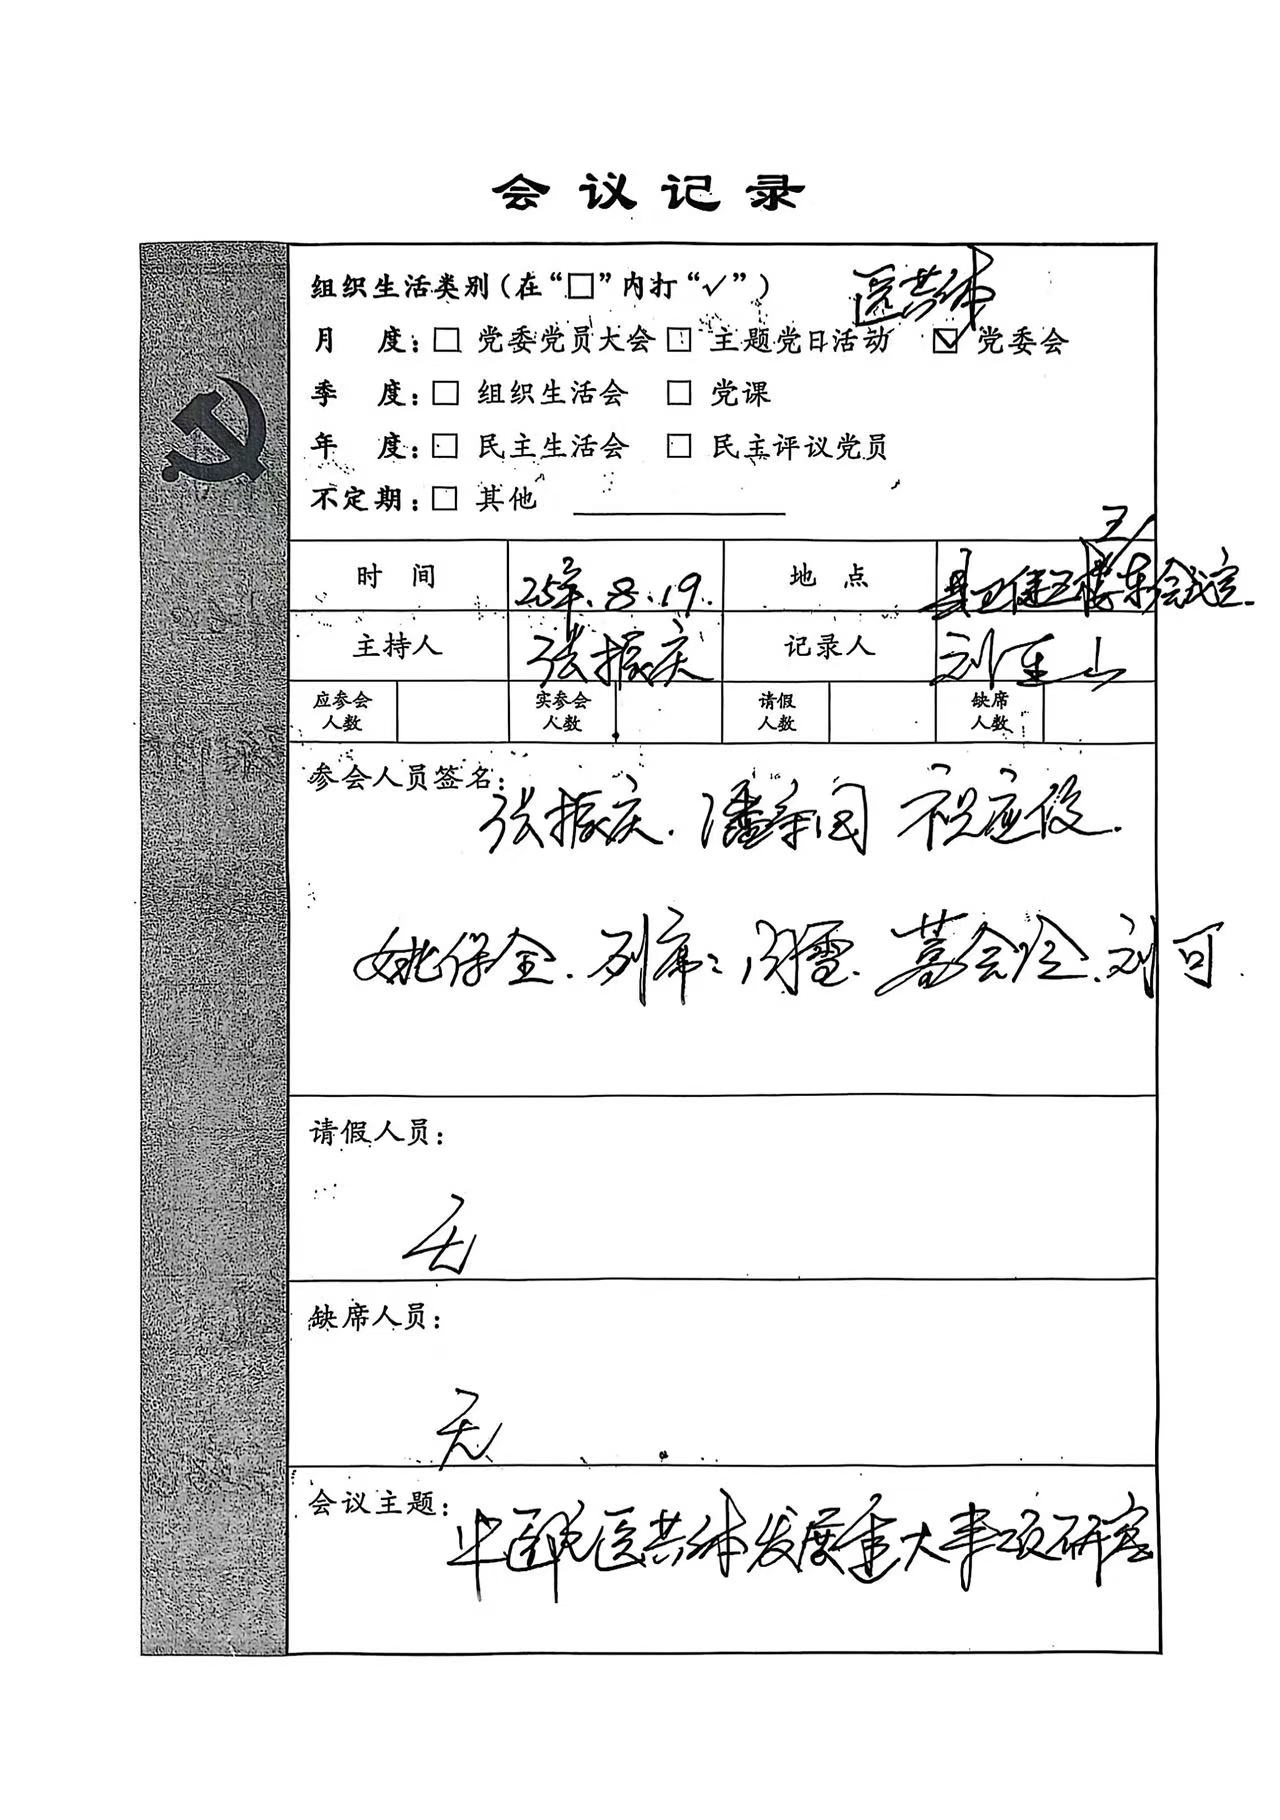 会议记录
组织生活类别(在“□”内打“√”) 医共体
月 度:□ 党委党员大会 □ 主题党日活动 ☑ 党委会
季 度:□ 组织生活会 □ 党课
年 度:□ 民主生活会 □ 民主评议党员
不定期:□ 其他
时间 25年.8.19. 地点 县卫健五楼东会议室.
主持人 张振庆 记录人 刘玉山
应参会人数 实参会人数 请假人数 缺席人数
参会人员签名:
张振庆. 潘 祝应俊.
姚保全. 列席: 闫雪. 葛会 、刘可.
请假人员:
无
缺席人员:
无
会议主题:
中医院医共体发展重大事项研究